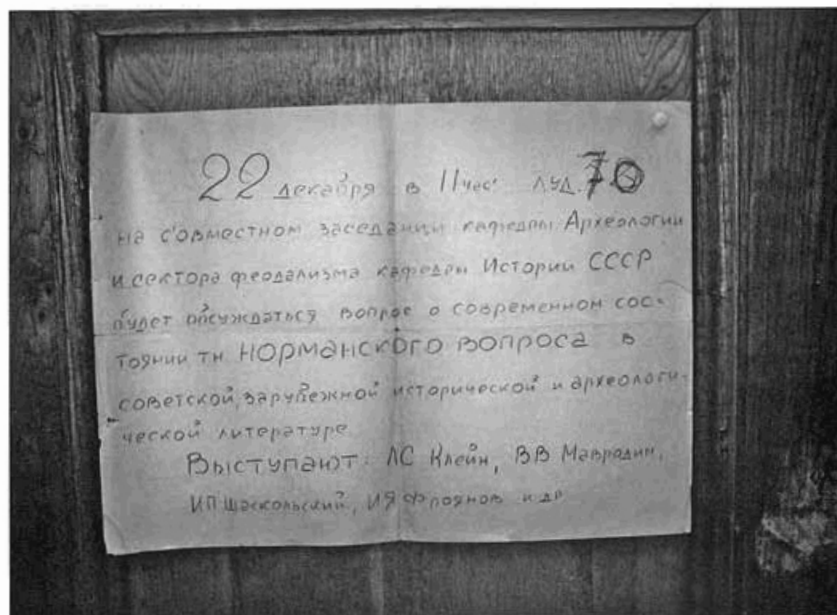 22 декабря в 11 час. ауд. 70
на совместном заседании кафедры Археологии
и сектора феодализма кафедры Истории СССР
будет обсуждаться вопрос о современном сос-
тоянии т.н. НОРМАНСКОГО ВОПРОСА в
советской, зарубежной исторической и археологи-
ческой литературе
Выступают: ЛС Клейн, ВВ Мавродин,
ИП Шаскольский, ИЯ Фроянов и др